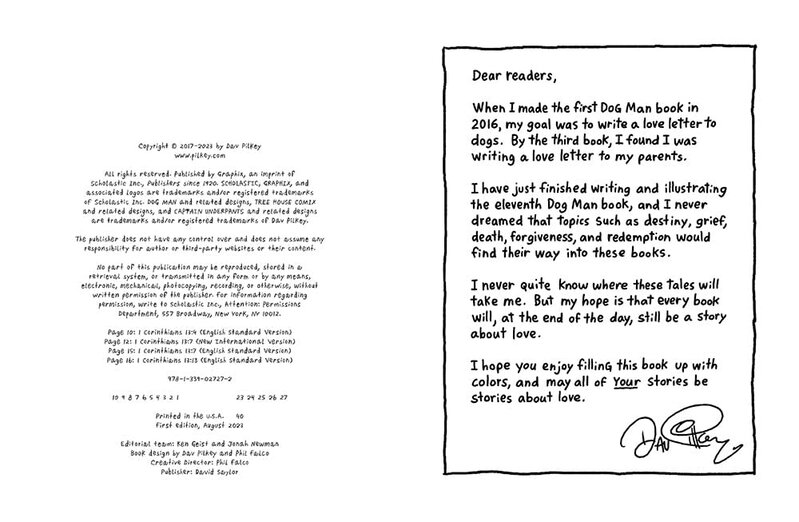 Copyright © 2017-2023 by Dav Pilkey
www.pilkey.com
All rights reserved. Published by Graphix, an imprint of
Scholastic Inc., Publishers since 1920. SCHOLASTIC, GRAPHIX, and
associated logos are trademarks and/or registered trademarks
of Scholastic Inc. DOG MAN and related designs, TREE HOUSE COMIX
and related designs, and CAPTAIN UNDERPANTS and related designs
are trademarks and/or registered trademarks of Dav Pilkey.
The publisher does not have any control over and does not assume any
responsibility for author or third-party websites or their content.
No part of this publication may be reproduced, stored in a
retrieval system, or transmitted in any form or by any means,
electronic, mechanical, photocopying, recording, or otherwise, without
written permission of the publisher. For information regarding
permission, write to Scholastic Inc., Attention: Permissions
Department, 557 Broadway, New York, NY 10012.
Page 10: 1 Corinthians 13:4 (English Standard Version)
Page 12: 1 Corinthians 13:7 (New International Version)
Page 15: 1 Corinthians 13:7 (English Standard Version)
Page 16: 1 Corinthians 13:13 (English Standard Version)
978-1-339-02727-2
10 9 8 7 6 5 4 3 2 1 23 24 25 26 27
Printed in the U.S.A. 40
First edition, August 2023
Editorial team: Ken Geist and Jonah Newman
Book design by Dav Pilkey and Phil Falco
Creative Director: Phil Falco
Publisher: David Saylor
Dear readers,
When I made the first Dog Man book in
2016, my goal was to write a love letter to
dogs. By the third book, I found I was
writing a love letter to my parents.
I have just finished writing and illustrating
the eleventh Dog Man book, and I never
dreamed that topics such as destiny, grief,
death, forgiveness, and redemption would
find their way into these books.
I never quite know where these tales will
take me. But my hope is that every book
will, at the end of the day, still be a story
about love.
I hope you enjoy filling this book up with
colors, and may all of your stories be
stories about love.
Dav Pilkey